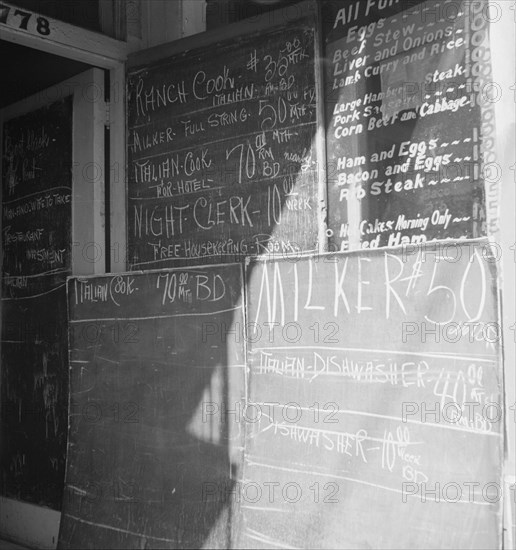 778
RANCH COOK $35.00
ITALIAN MTH
MILKER - FULL STRING - 50.00
MTH
ITALIAN COOK 70.00
RM BD
FOR HOTEL
NIGHT-CLERK - 10.00
WEEK
FREE HOUSEKEEPING ROOM
Eggs
Beef Stew
Liver and Onions
Lamb Curry and Rice
Large Hamburger Steak
Pork
Corn Beef and Cabbage
Ham and Eggs
Bacon and Eggs
Rib Steak
Hot Cakes Morning Only
Fried Ham
ITALIAN COOK 70.00 MTH BD
MILKER $50
ITALIAN-DISHWASHER 40.00
MTH
DISHWASHER - 10.00
WEEK
BD
MAN & WIFE TO TAKE
RESTAURANT
INVESTMENT
ITALIAN